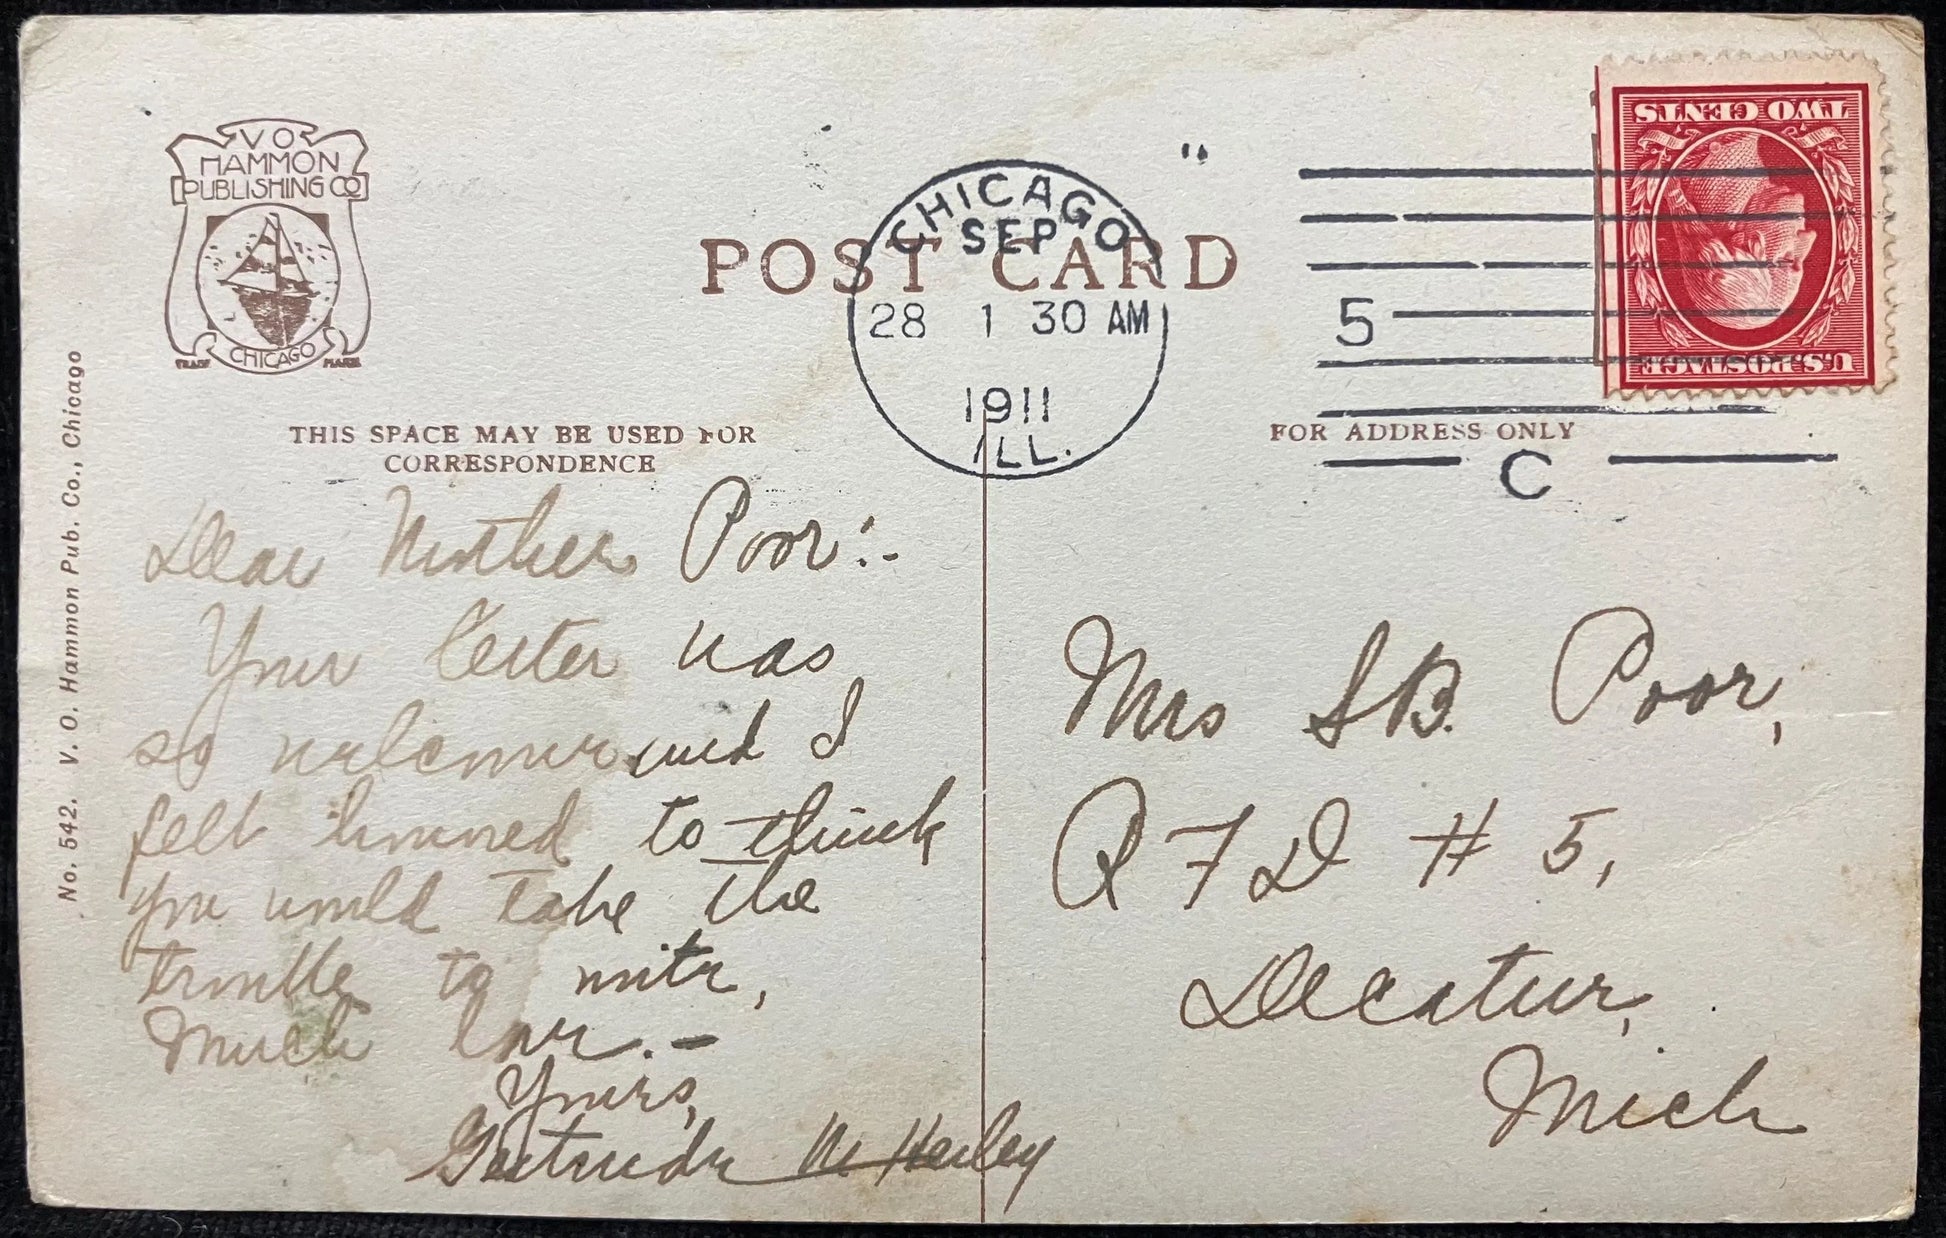 V O
HAMMON
PUBLISHING CO
CHICAGO
TRADE MARK
No. 542. V. O. Hammon Pub. Co., Chicago
POST CARD
CHICAGO
SEP
28 1 30 AM
1911
ILL.
5
C
TWO CENTS
U.S. POSTAGE
THIS SPACE MAY BE USED FOR
CORRESPONDENCE
FOR ADDRESS ONLY
Dear Mother Poor:-
Your letter was
so welcome and I
felt honored to think
you would take the
trouble to write,
Much love.-
Yours,
Gertrude
Mrs S B. Poor,
R F D # 5,
Decatur,
Mich